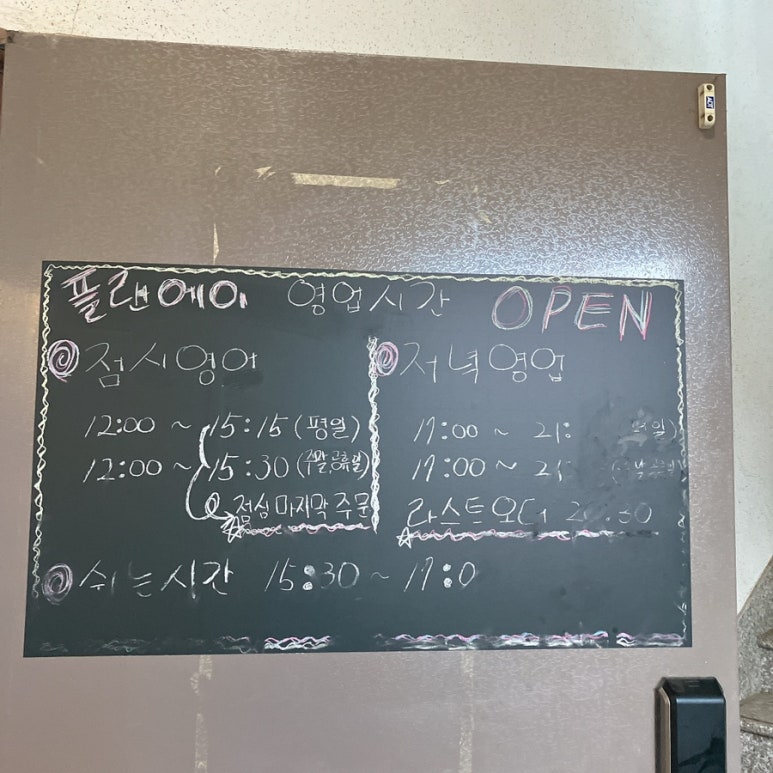 플랜에이 영업시간 OPEN
점심영업
12:00 ~ 15:15 (평일)
12:00 ~ 15:30 (주말,공휴일)
점심 마지막 주문
저녁영업
17:00 ~ 21:
17:00 ~ 21:
라스트오더
쉬는시간 15:30 ~ 17:0